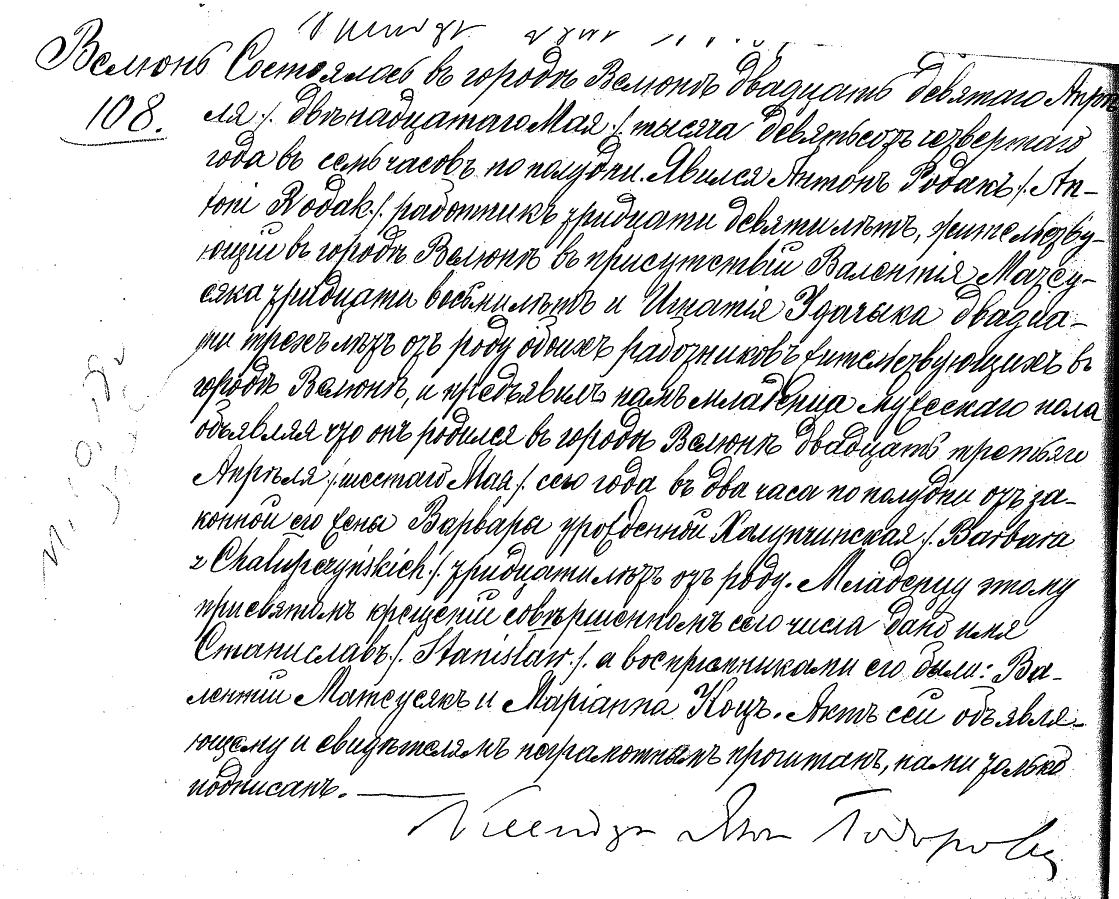 Велюнь
108.
Состоялось въ городѣ Велюнѣ двадцать девятаго Апрѣ-
ля /. двѣнадцатаго Мая /. тысяча девятьсотъ четвертаго
года въ семь часовъ по полудни. Явился Антонъ Родакъ /. An-
toni Rodak /. работникъ тридцати девяти лѣтъ, жительству-
ющій въ городѣ Велюнѣ въ присутствіи Валентія Матеу-
сяка тридцати восьми лѣтъ и Игнатія Удачыка двадца-
ти трехъ лѣтъ отъ роду обоихъ работниковъ жительствующихъ въ
городѣ Велюнѣ, и предъявилъ намъ младенца мужескаго пола
объявляя что онъ родился въ городѣ Велюнѣ двадцать третьяго
Апрѣля /. шестаго Мая /. сего года въ два часа по полудни отъ за-
конной его жены Варвары урожденной Халупчинская /. Barbara
z Chałupczyńskich /. тридцати лѣтъ отъ роду. Младенцу этому
при святомъ крещеніи совершенномъ сего числа дано имя
Станиславъ /. Stanisław /. а воспріемниками его были: Ва-
лентій Матеусякъ и Маріанна Коцъ. Актъ сей объявля-
ющему и свидѣтелямъ неграмотнымъ прочитанъ, нами только
подписанъ. —
Ксендзъ Янъ